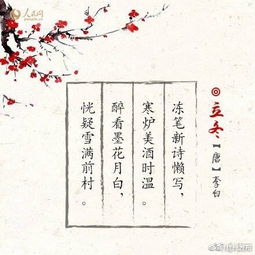 人民网
立冬【唐】李白
冻笔新诗懒写，
寒炉美酒时温。
醉看墨花月白，
恍疑雪满前村。